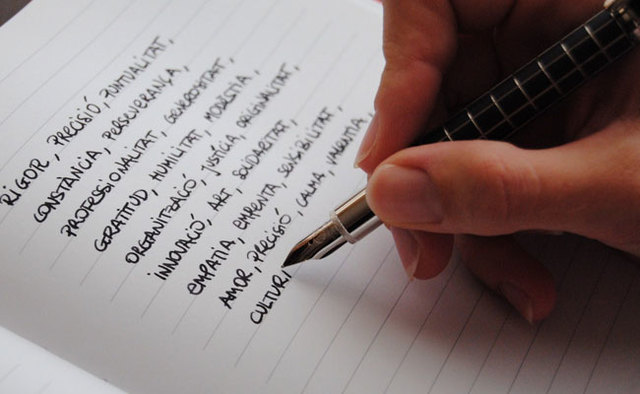 RIGOR, PRECISIÓ, PUNTUALITAT,
CONSTÀNCIA, PERSEVERANÇA,
PROFESSIONALITAT, GENEROSITAT,
GRATITUD, HUMILITAT, MODESTIA,
ORGANITZACIÓ, JUSTÍCIA, ORIGINALITAT,
INNOVACIÓ, ART, SOLIDARITAT,
EMPATIA, EMPENTA, SENSIBILITAT,
AMOR, PRECISIÓ, CALMA, VALENTIA,
CULTUR